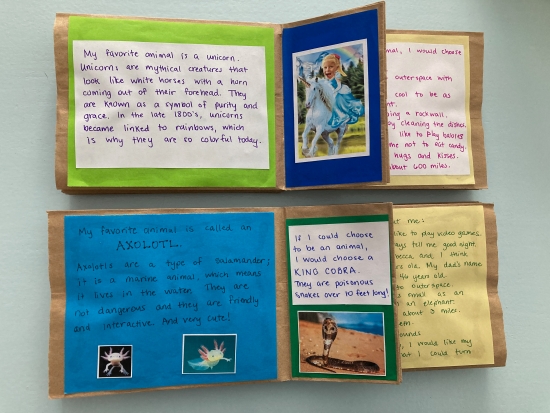 My favorite animal is a unicorn.
Unicorns are mythical creatures that
look like white horses with a horn
coming out of their forehead. They
are known as a symbol of purity and
grace. In the late 1800's, unicorns
became linked to rainbows, which
is why they are so colorful today.
mal, I would choose
outerspace with
cool to be as
nt.
ing a rockwall.
by cleaning the dishes.
like to play babies
me not to eat candy.
hugs and kisses.
about 600 miles.
My favorite animal is called an
AXOLOTL.
Axolotls are a type of salamander;
it is a marine animal, which means
it lives in the water. They are
not dangerous and they are friendly
and interactive. And very cute!
If I could choose
to be an animal,
I would choose a
KING COBRA.
They are poisonous
snakes over 10 feet long!
ut me:
like to play video games.
ays tell me good night.
becca, and I think
rs old. My dad's name
46 years old.
to outerspace.
s small as an
an elephant.
about 3 miles.
em.
ounds
, I would like my
at I could turn